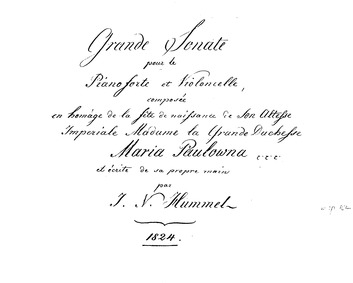 Grande Sonate
pour le
Pianoforte et Violoncelle,
composée
en homage de la fête de naissance de Son Altesse
Imperiale Madame la Grande Duchesse
Maria Paulowna
et écrite de sa propre main
par
J. N. Hummel
1824.